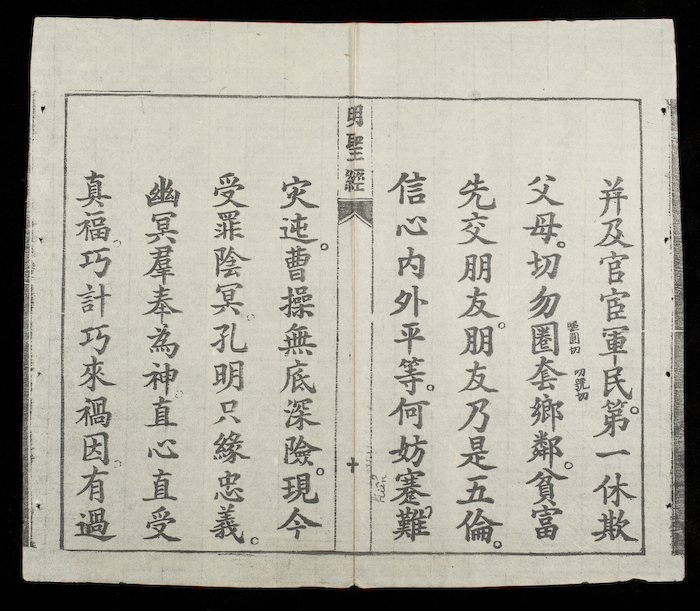 并及官宦軍民。第一休欺
父母。切勿圈套鄉鄰。貧富
圓切
叨號切
先交朋友。朋友乃是五倫。
信心內外平等。何妨蹇難
明聖經
十
灾迍。曹操無底深險。現今
受罪陰冥。孔明只緣忠義。
幽冥羣奉為神。直心直受
真福。巧計巧來禍因。有過